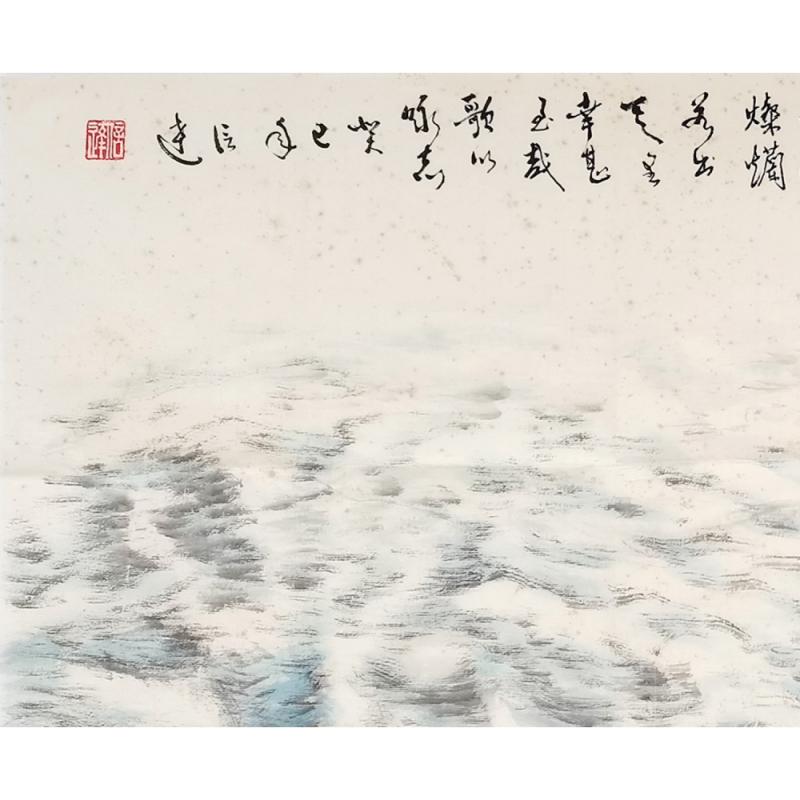 燦爛
若出
其里
幸甚
至哉
歌以
咏志
癸
巳
年
信
達